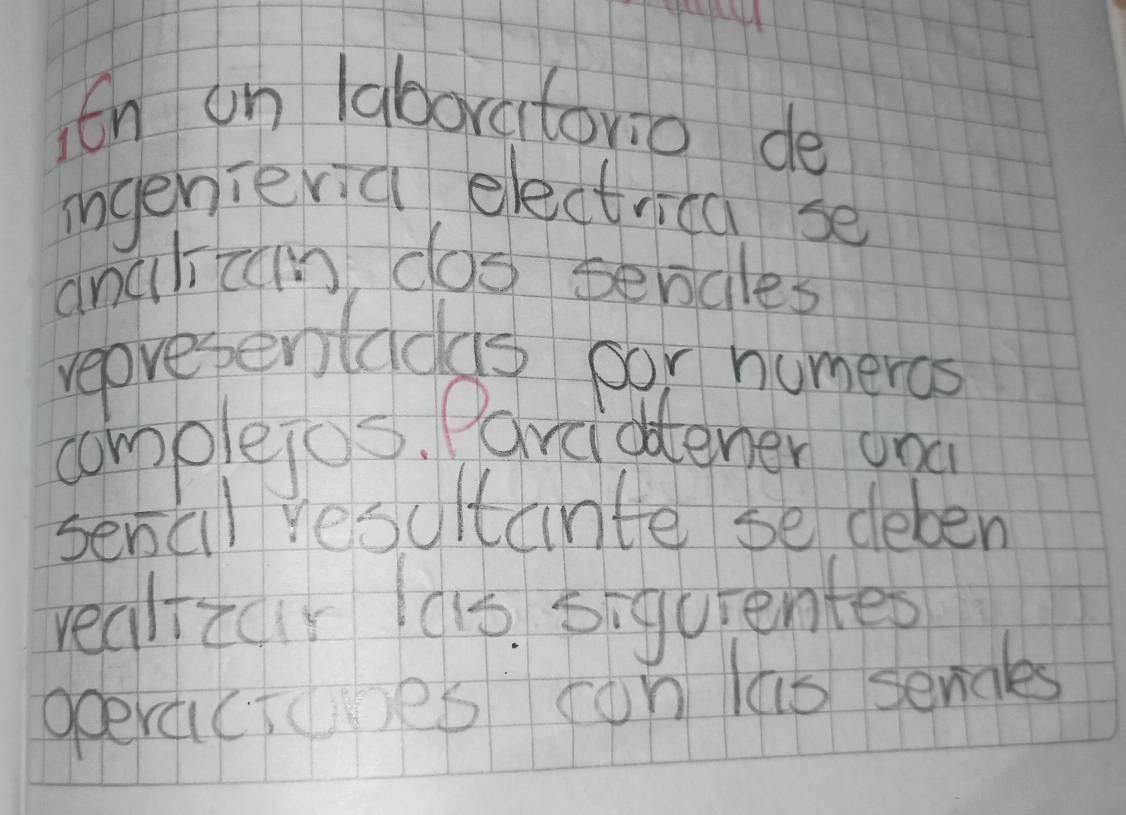 1 En un laboratorio de
ingenieria electrica se
analizan dos señales
representadas por numeros
complejos. Para obtener una
señal resultante se deben
realizar las siguientes
operaciones con las señales